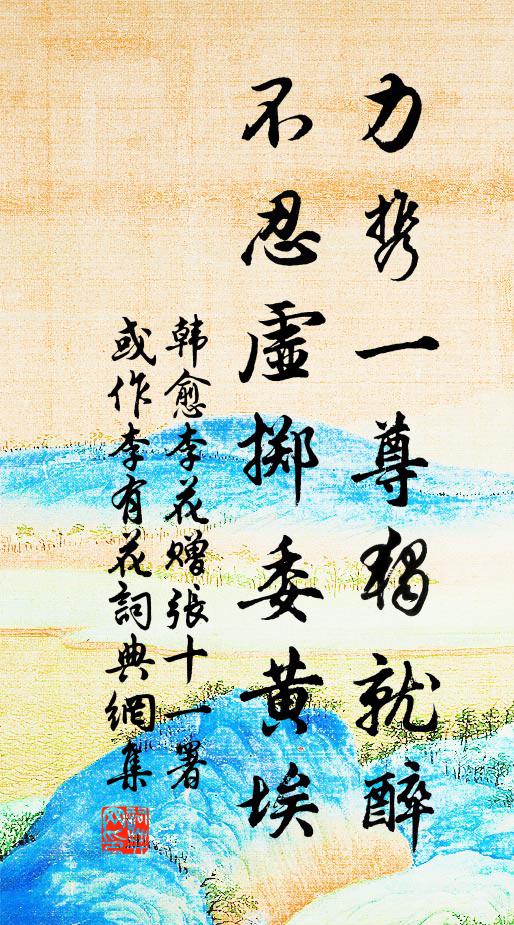 力携一尊獨就醉
不忍虚掷委黄埃
韩愈李花赠张十一署
或作李有花詞典網集